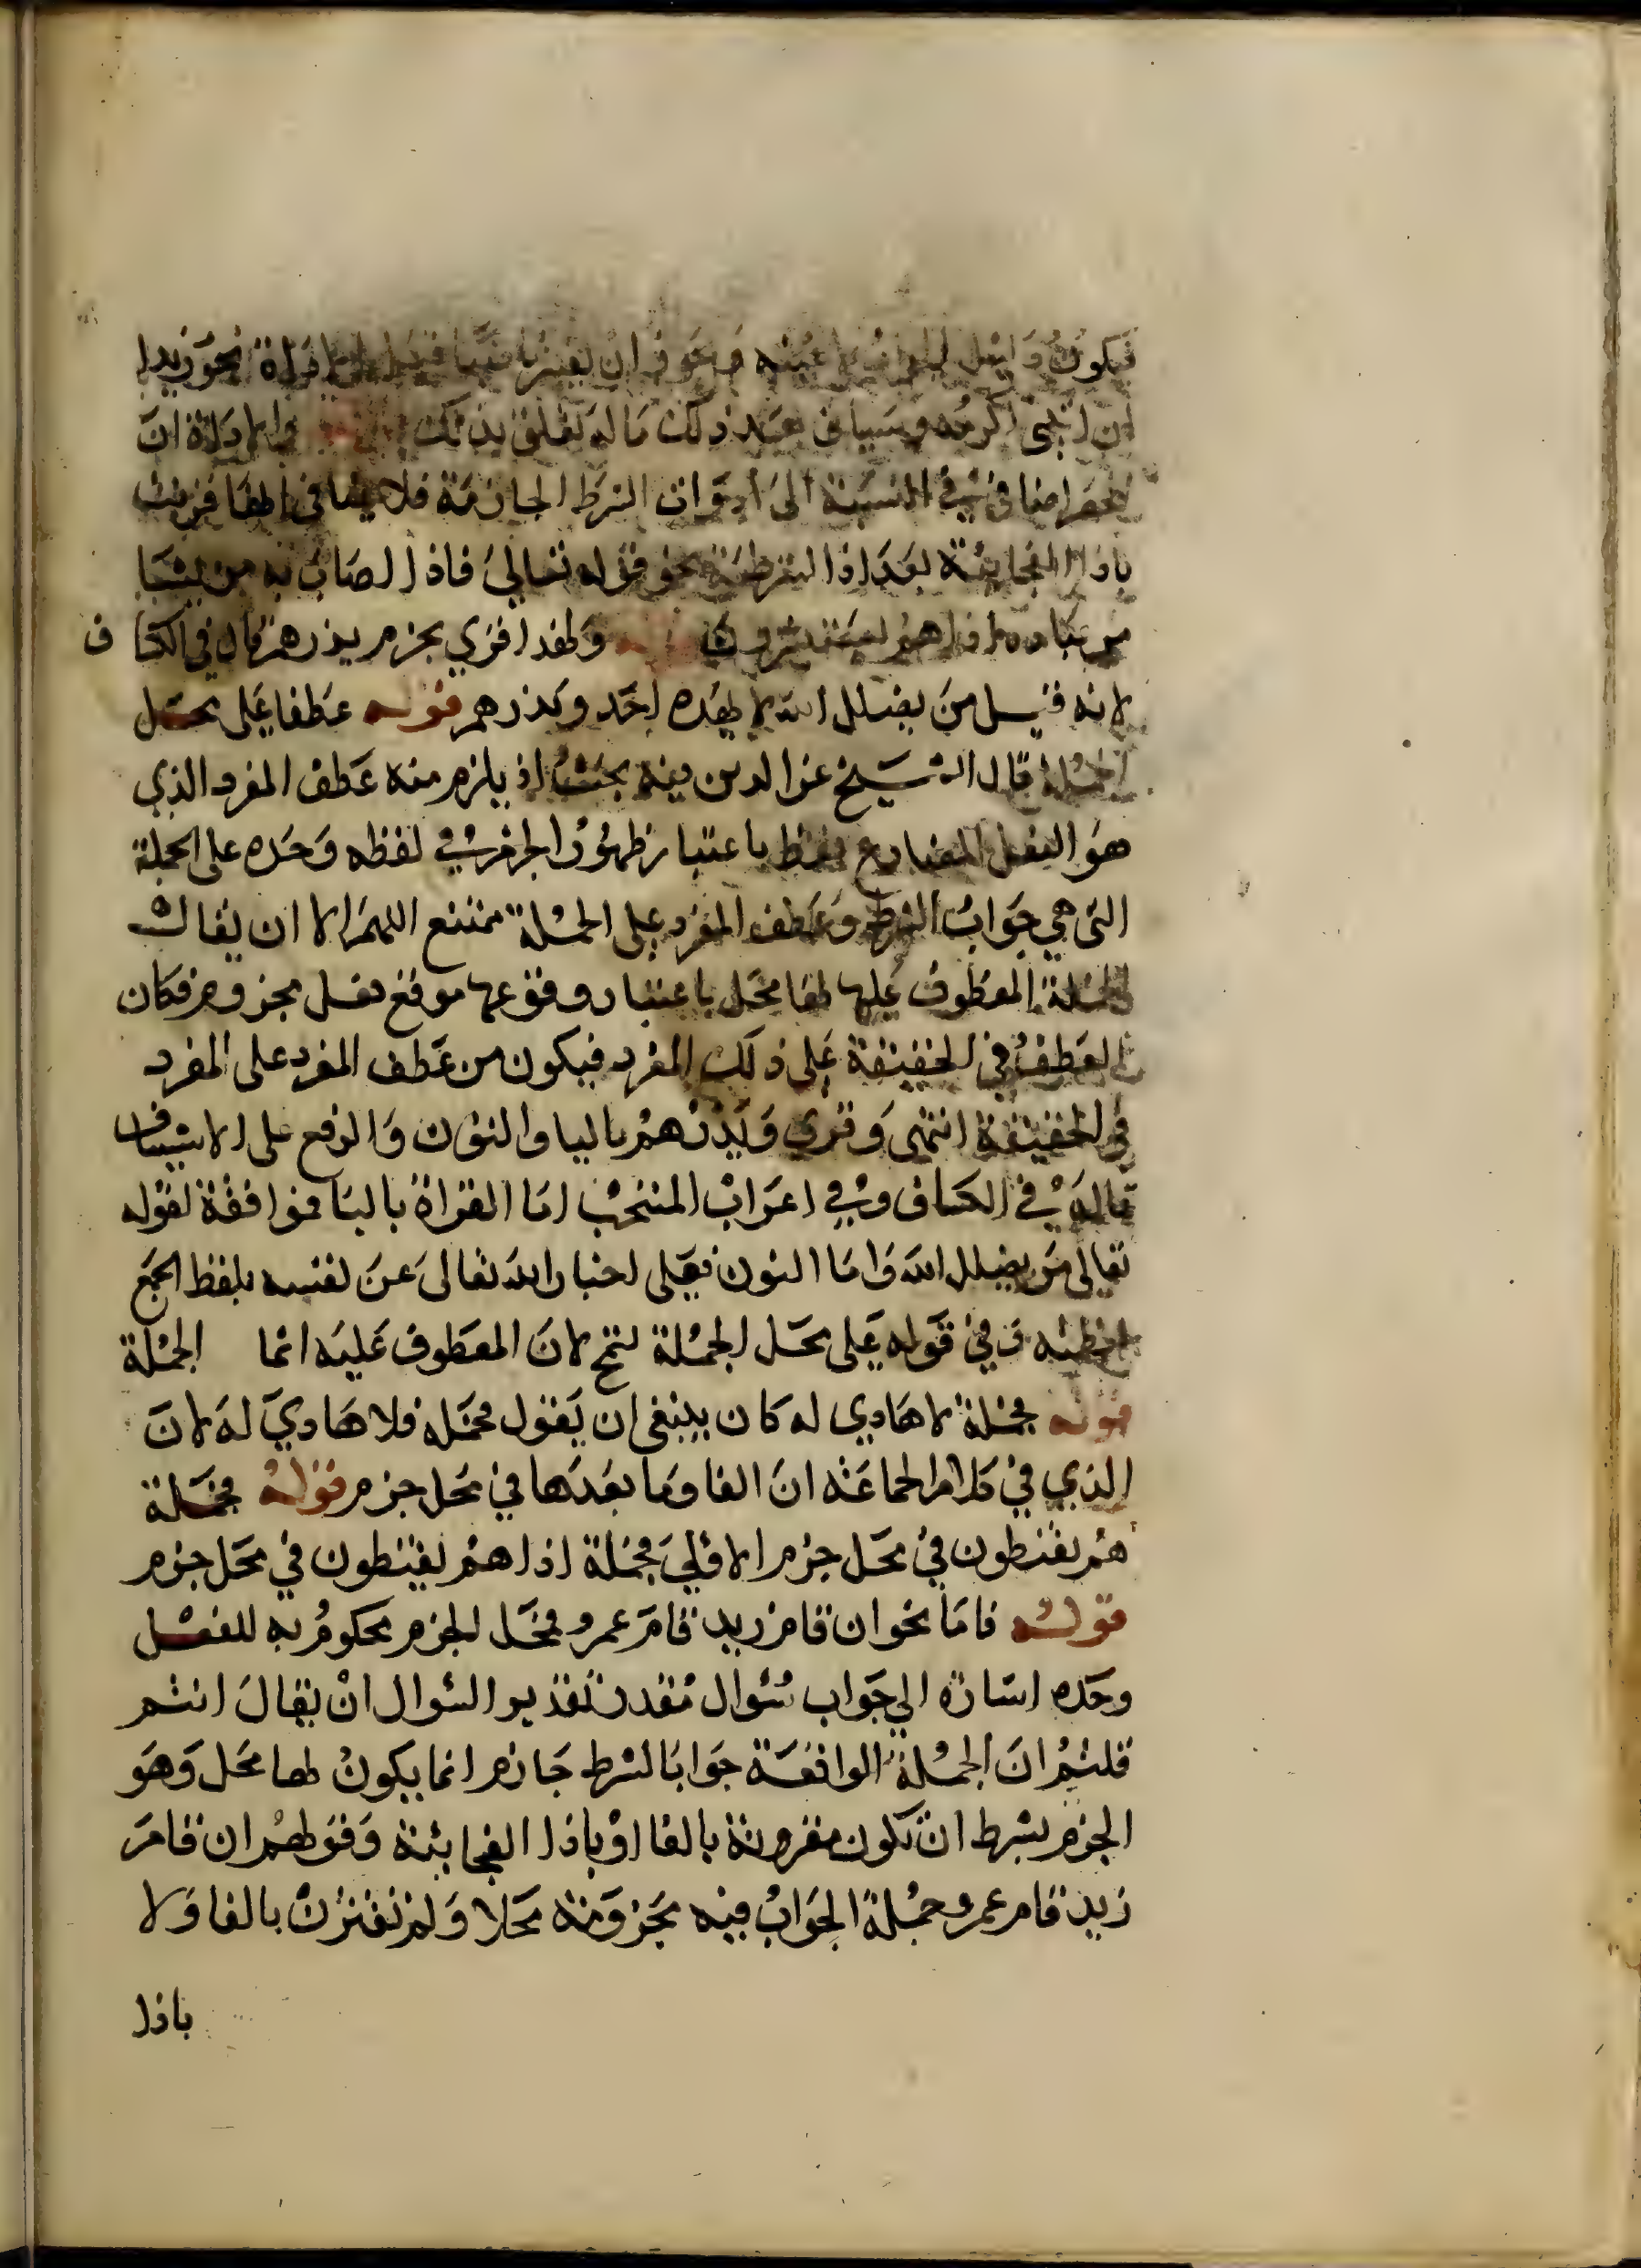 فيكون دليل الجواب لا عينه ويجوز ان يعتبر نحو زيدا
ان اكرمه وسياتي بعد ذلك ما له تعلق بذلك والاداة ان
الحصر اضافي بالنسبة الى ادوات الشرط الجازمة فلا ينافي انها قرنت
باذا الفجايية بعد اذا الشرطية نحو قوله تعالى فاذا اصاب به من يشا
من عباده اذا هم يستبشرون قوله ولهذا قري بجزم يذرهم قال في الكشاف
لانه قيل من يضلل الله لا يهده احد ويذرهم قوله عطفا على محل
الجملة قال الشيخ عز الدين فيه بحث اذ يلزم منه عطف المفرد الذي
هو الفعل المضارع فقط باعتبار ظهور الجزم في لفظه وحده على الجملة
التي هي جواب الشرط وعطف المفرد على الجملة ممتنع اللهم الا ان يقال
الجملة المعطوف عليها لها محل باعتبار وقوعها موقع فعل مجزوم فكان
العطف في الحقيقة على ذلك المفرد فيكون من عطف المفرد على المفرد
في الحقيقة انتهى وقري ويذرهم باليا والنون والرفع على الاستيناف
قاله في الكشاف وفي اعراب المنتخب اما القراة باليا فموافقة لقوله
تعالى من يضلل الله واما النون فعلى اخبار الله تعالى عن نفسه بلفظ الجمع
لعظمته وفي قوله على محل الجملة لان المعطوف عليه انما الجملة
قوله فجملة لا هادي له كان ينبغي ان يقول فجملة فلا هادي له لان
الذي في كلام الجماعة ان الفا وما بعدها في محل جزم قوله فجملة
هم يقنطون في محل جزم الاولى فجملة اذا هم يقنطون في محل جزم
قوله فاما نحو ان قام زيد قام عمرو فمحل الجزم محكوم به للفعل
وحده اشارة الى جواب سؤال مقدر تقدير السؤال ان يقال انتم
قلتم ان الجملة الواقعة جوابا لشرط جازم انما يكون لها محل وهو
الجزم بشرط ان تكون مقرونة بالفا او باذا الفجايئة وقولهم ان قام
زيد قام عمرو جملة الجواب فيه مجزومة محلا ولم تقترن بالفا ولا
باذا